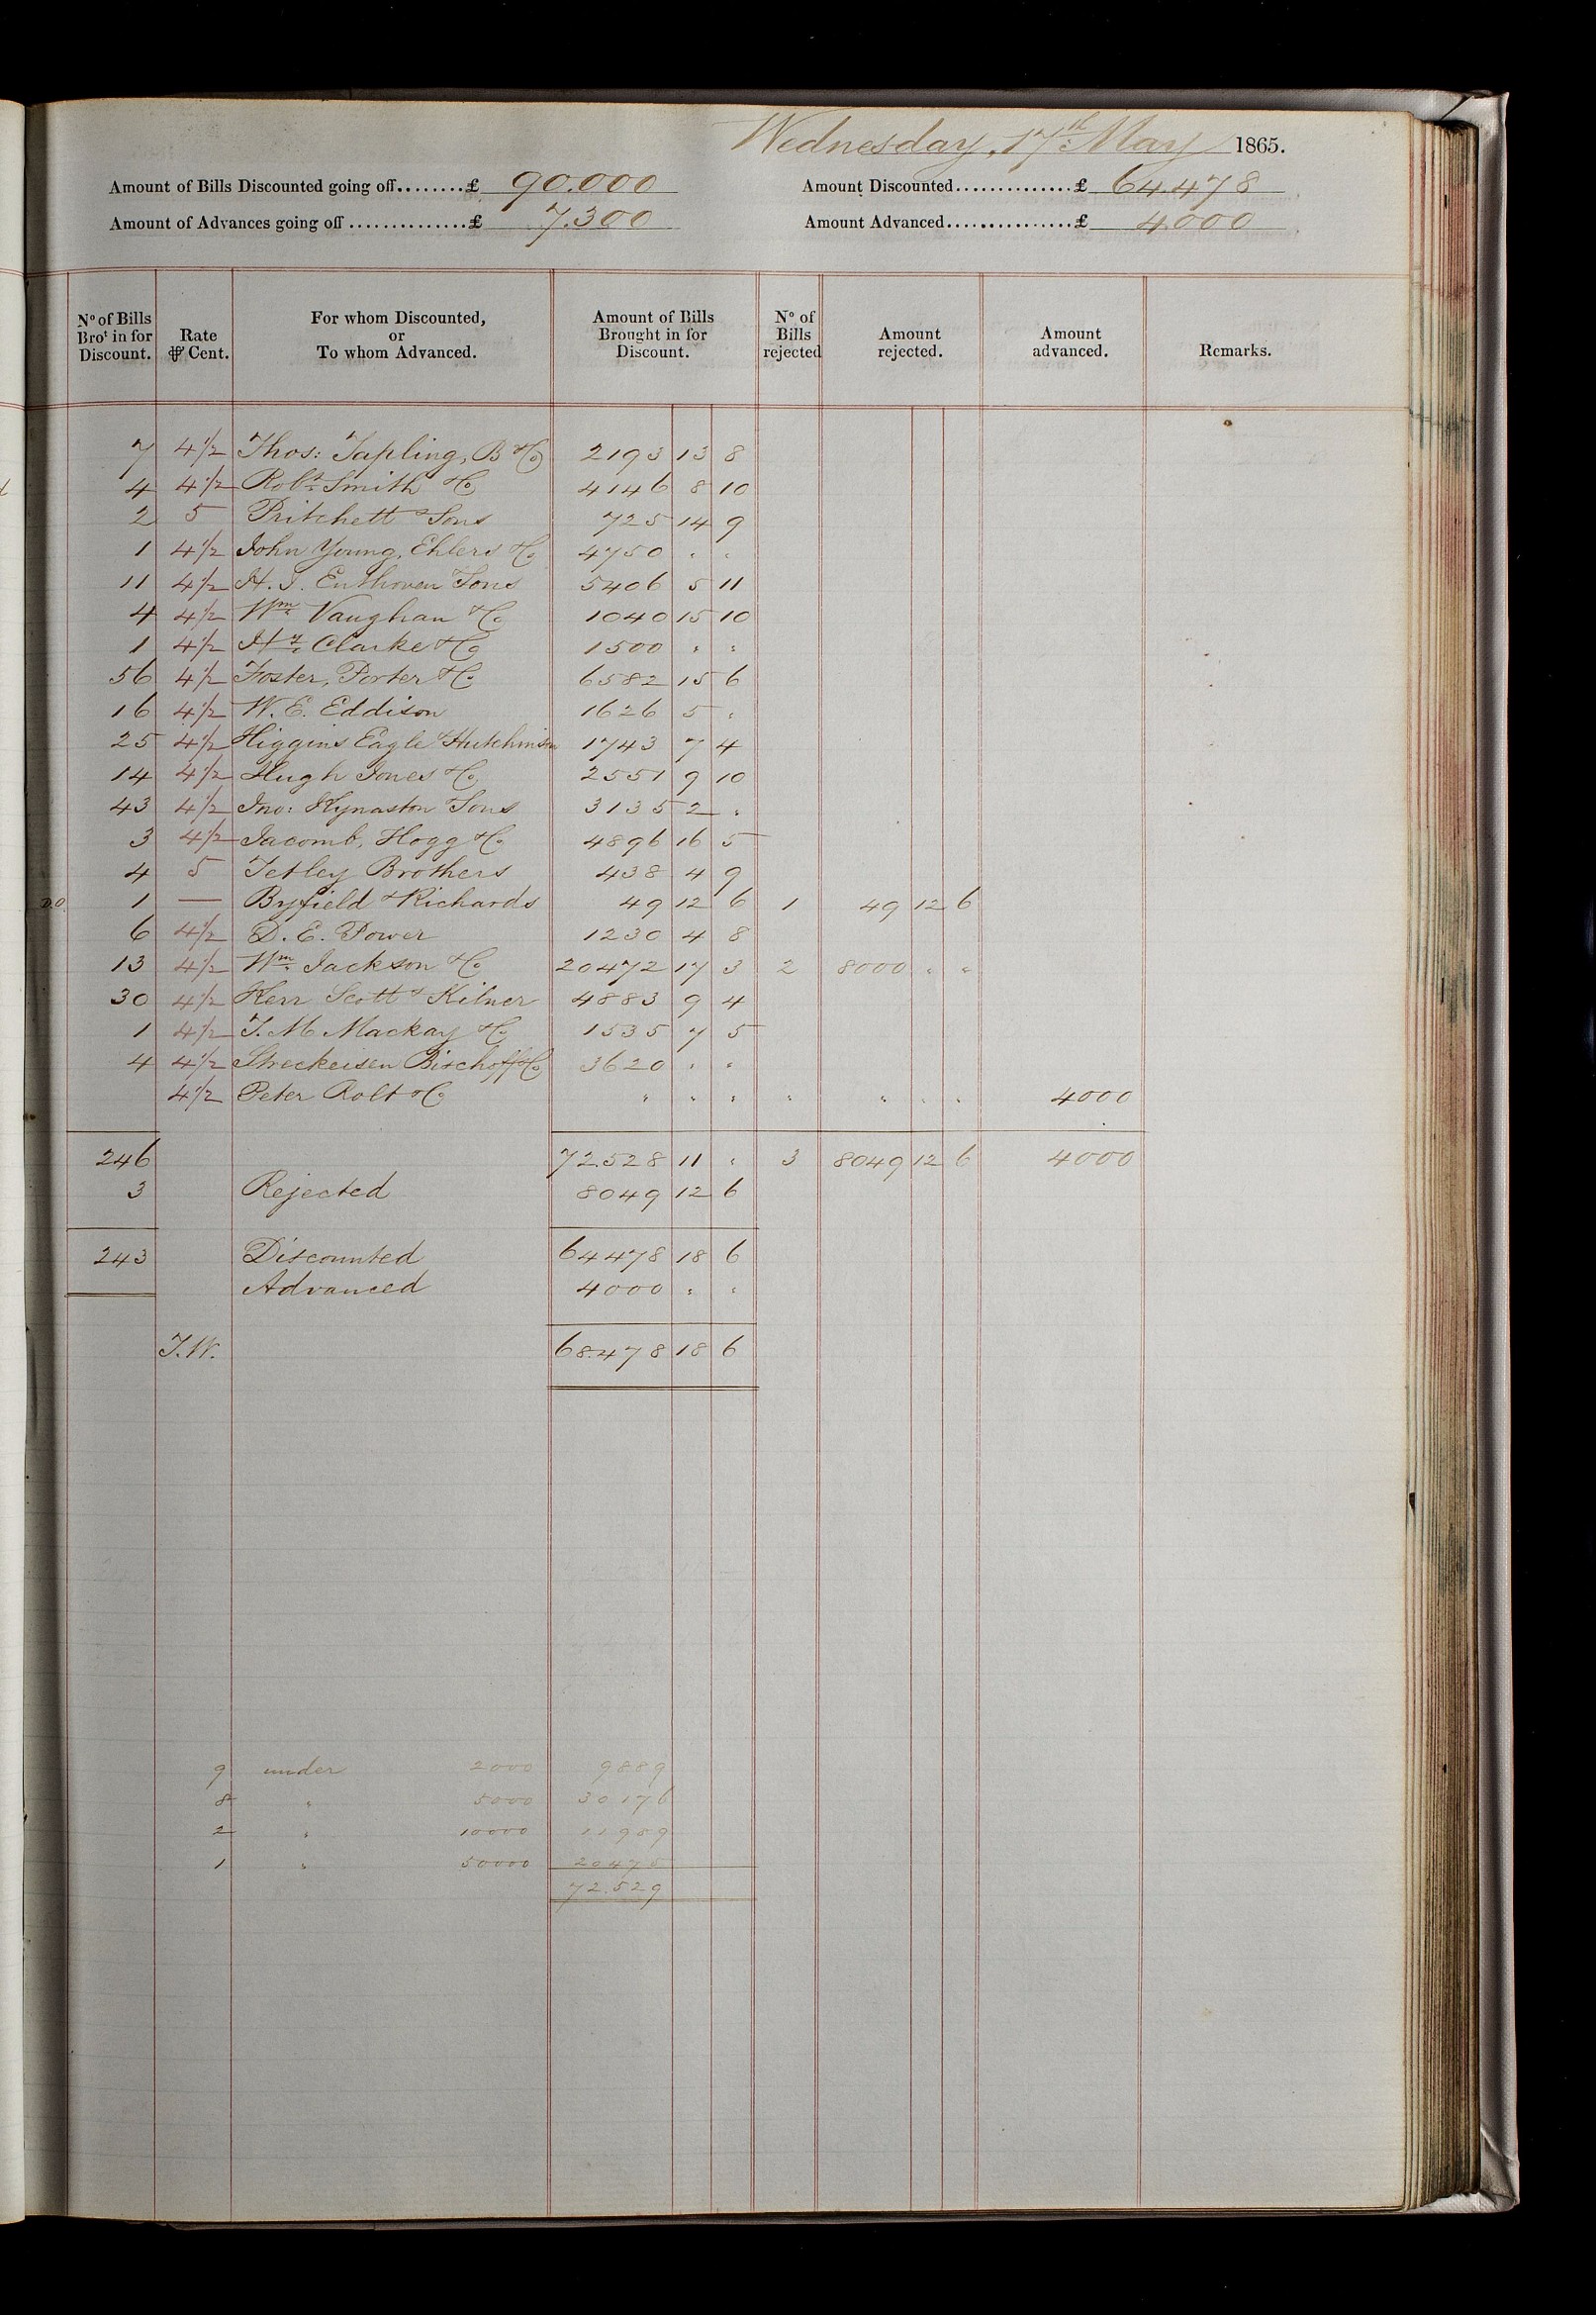 Wednesday, 17th May 1865.
Amount of Bills Discounted going off........£ 90.000 Amount Discounted..............£ 64.478
Amount of Advances going off ..............£ 7.300 Amount Advanced...............£ 4.000
No of Bills Brot in for Discount. Rate ⅌ Cent. For whom Discounted, or To whom Advanced. Amount of Bills Brought in for Discount. No of Bills rejected Amount rejected. Amount advanced. Remarks.
7 4½ Thos: Tapling, B & Co 2193 13 8
4 4½ Robt Smith & Co 4146 8 10
2 5 Pritchett & Sons 725 14 9
1 4½ John Young, Ehlers & Co 4750 " "
11 4½ H. J. Enthoven Sons 5406 5 11
4 4½ Wm Vaughan & Co 1040 15 10
1 4½ Hy Clarke & Co 1500 " "
56 4½ Foster, Porter & Co 6582 15 6
16 4½ W. E. Eddison 1626 5 "
25 4½ Higgins Eagle & Hutchinson 1743 7 4
14 4½ Hugh Jones & Co 2551 9 10
43 4½ Jno: Kynaston Sons 3135 2 "
3 4½ Jacomb, Hogg & Co 4896 16 5
4 5 Tetley Brothers 438 4 9
D.O. 1 — Byfield & Richards 49 12 6 1 49 12 6
6 4½ D. E. Power 1230 4 8
13 4½ Wm Jackson & Co 20472 17 3 2 8000 " "
30 4½ Kerr Scott & Kilner 4883 9 4
1 4½ T. M Mackay & Co 1535 7 5
4 4½ Streckeisen Bischoff & Co 3620 " "
4½ Peter Rolt & Co " " " " " " " 4000
246 72.528 11 " 3 8049 12 6 4000
3 Rejected 8049 12 6
243 Discounted 64478 18 6
Advanced 4000 " "
T.W. 68.478 18 6
9 under 2000 9889
8 " 5000 30176
2 " 10000 11989
1 " 50000 20475
72.529